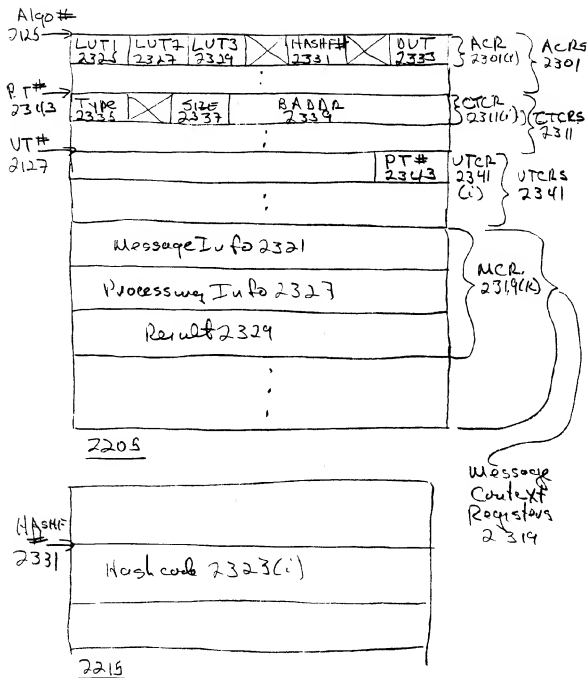 Algo #
2125
LUT1 LUT2 LUT3 HASHF# OUT
2325 2327 2329 2331 2333
ACR
2301(i)
ACRS
2301
PT#
2343
TYPE SIZE BADDR
2335 2337 2339
CTCR
2311(i)
CTCRS
2311
VT#
2127
PT #
2343
VTCR
2341
(i)
VTCRS
2341
Message Info 2321
Processing Info 2327
Result 2329
MCR
2319(k)
2205
Message
Context
Registers
2319
HASHF
#
2331
Hashcode 2323(i)
2215